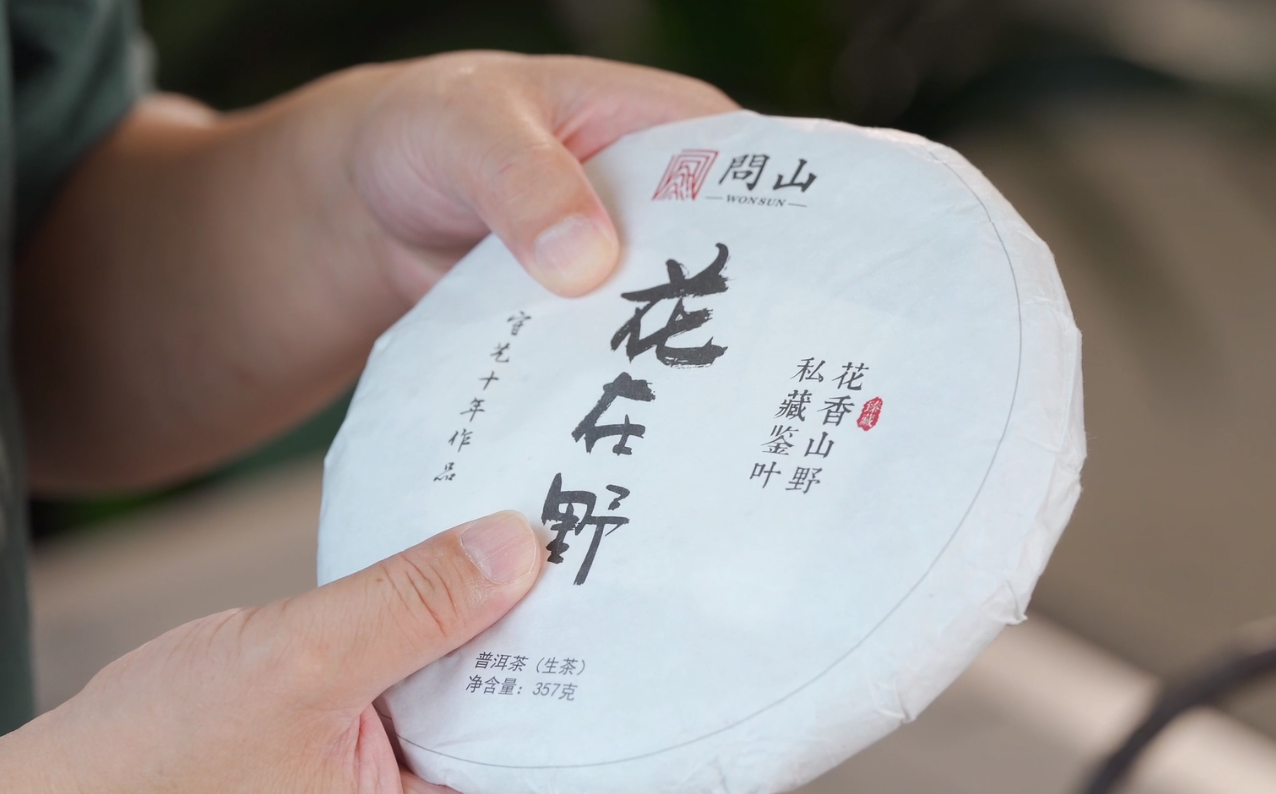 問山
WONSUN
花在野
花香山野
私藏鉴叶
臻藏
官艺十年作品
普洱茶（生茶）
净含量：357克